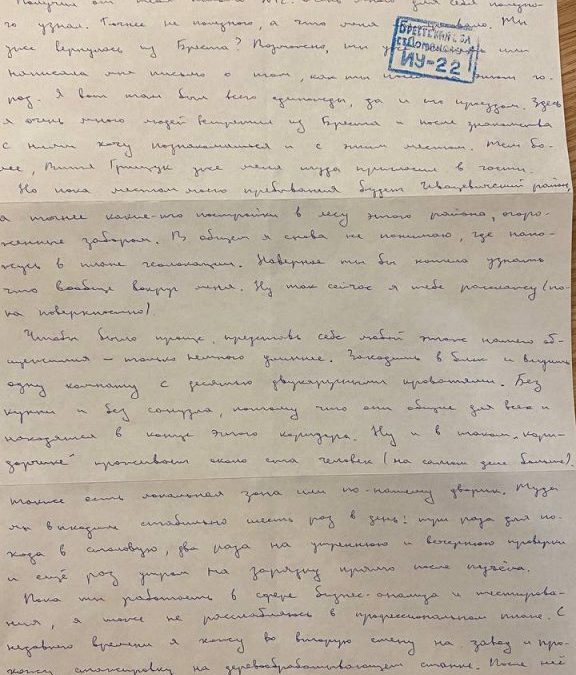 Получил от тебя письмо
го узнал. Точнее не полезного, а что меня
уже вернулась из Бреста? Возможно, ты уже или
написала мне письмо о том, как ты этот го-
род. Я вот там был всего единожды, да и то проездом. Здесь
я очень много людей встретил из Бреста и после знакомства
с ними хочу познакомиться и с этим местом. Тем бо-
лее, Витя Грищук уже меня туда пригласил в гости.
Но пока местом моего пребывания будет Ивацевичский район,
а точнее какие-то постройки в лесу этого района, огоро-
женные забором. В общем я снова не понимаю, где нахо-
жусь в плане геолокации. Наверное ты бы хотела узнать
что вообще вокруг меня. Ну так сейчас я тебе расскажу (по-
ка поверхностно).
Чтобы было проще, представь себе любой этаж нашего об-
щежития – только немного длиннее. Заходишь в блок и видишь
одну комнату с десятью двухъярусными кроватями. Без
кухни и без санузла, потому что они общие для всех и
находятся в конце этого коридора. Ну и в таком „кори-
дорчике" проживает около ста человек (на самом деле больше).
Также есть локальная зона или по-нашему дворик. Туда
мы выходим стабильно шесть раз в день: три раза для по-
хода в столовую, два раза на утреннюю и вечернюю проверки
и ещё раз утром на зарядку прямо после подъёма.
Пока ты работаешь в сфере бизнес-анализа и тестирова-
ния, я тоже не расслабляюсь в профессиональном плане. С
недавнего времени я хожу во вторую смену на завод и про-
хожу стажировку на деревообрабатывающем станке. После неё
ИУ-22